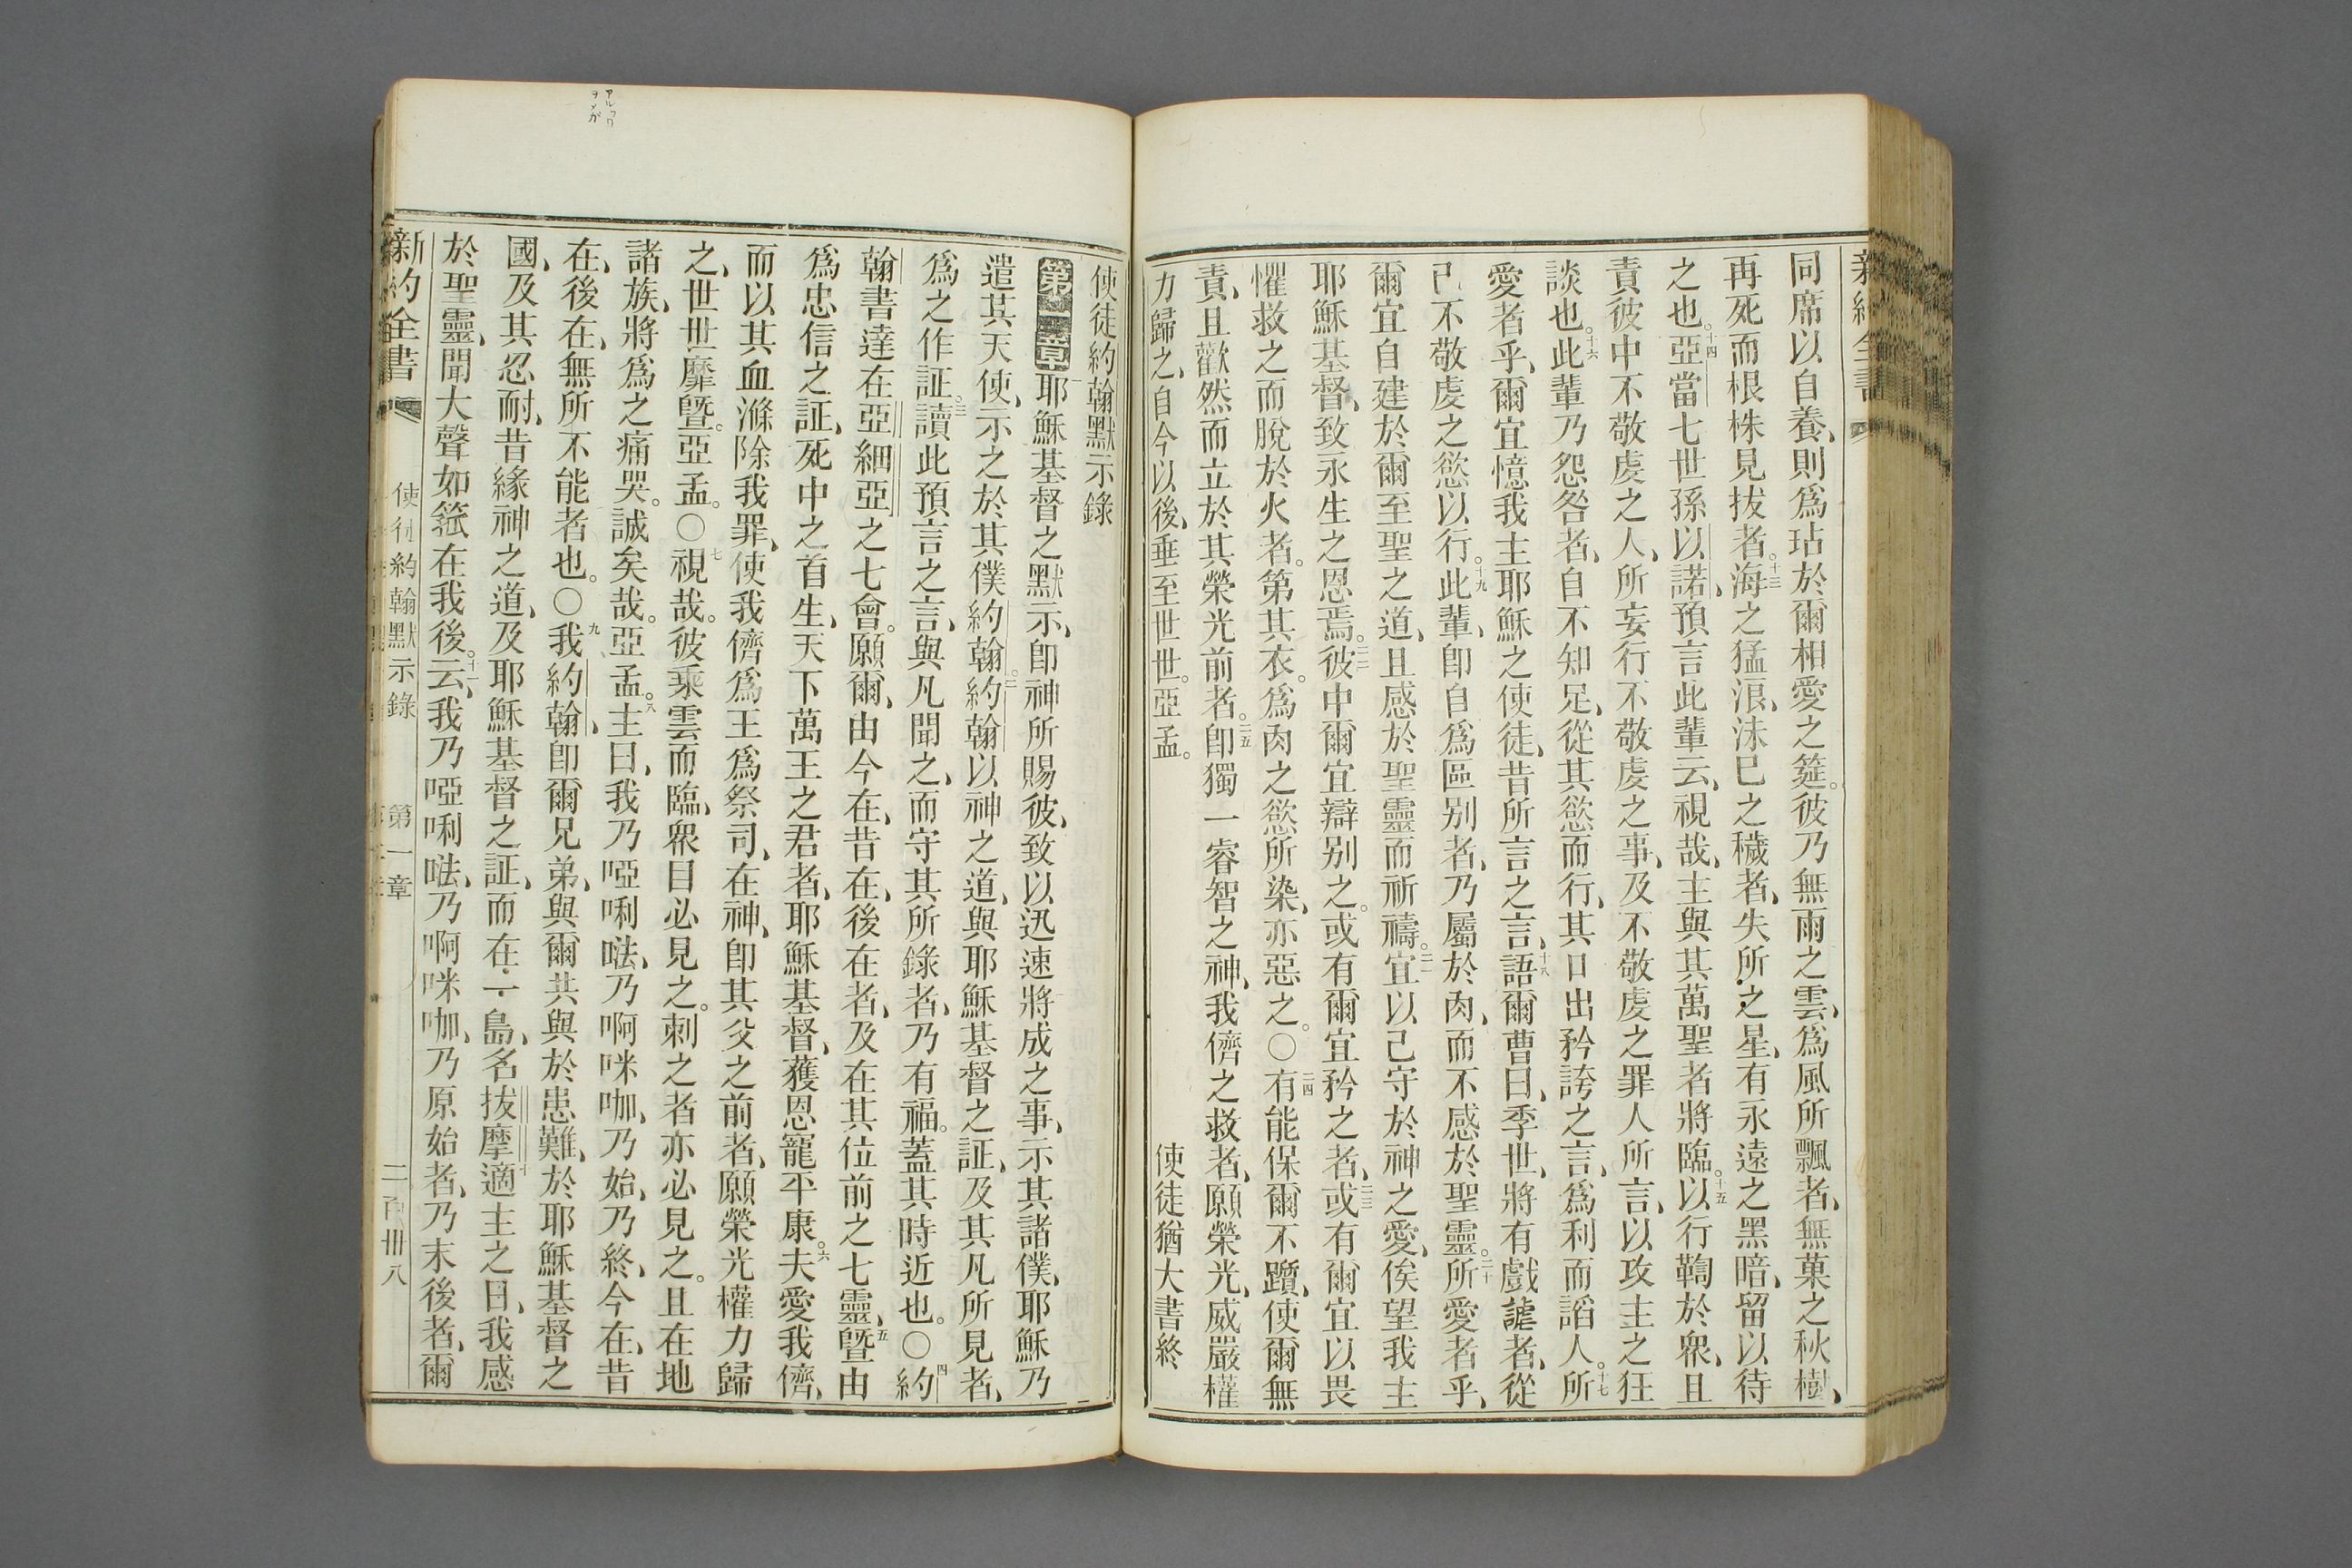 新約全書
同席以自養、則爲玷於爾相愛之筵。彼乃無雨之雲、爲風所飄者、無菓之秋樹、
再死而根株見拔者。十三海之猛浪、沬已之穢者、失所之星、有永遠之黑暗、留以待
之也。十四亞當七世孫以諾、預言此輩云、視哉、主與其萬聖者將臨。十五以行鞫於衆、且
責彼中不敬虔之人、所妄行不敬虔之事、及不敬虔之罪人所言、以攻主之狂
談也。十六此輩乃怨咎者、自不知足、從其慾而行、其口出矜誇之言、爲利而諂人。十七所
愛者乎、爾宜憶我主耶穌之使徒、昔所言之言、十八語爾曹曰、季世、將有戲謔者、從
己不敬虔之慾以行。十九此輩、卽自爲區别者、乃屬於肉、而不感於聖靈。二十所愛者乎、
爾宜自建於爾至聖之道、且感於聖靈而祈禱。二一宜以己守於神之愛、俟望我主
耶穌基督、致永生之恩焉。二二彼中爾宜辯别之。或有爾宜矜之者、二三或有爾宜以畏
懼救之而脫於火者。第其衣。爲肉之慾所染、亦惡之。〇二四有能保爾不躓、使爾無
責、且歡然而立於其榮光前者。二五卽獨一睿智之神、我儕之救者、願榮光、威嚴、權
力歸之、自今以後、垂至世世。亞孟。 使徒猶大書終
使徒約翰默示錄
第一章 耶穌基督之默示、卽神所賜彼、致以迅速將成之事、示其諸僕、耶穌乃
遣其天使、示之於其僕約翰。二約翰以神之道、與耶穌基督之証、及其凡所見者、
爲之作証。三讀此預言之言、與凡聞之、而守其所錄者、乃有福。蓋其時近也。〇四約
翰書達在亞細亞之七會。願爾、由今在、昔在、後在者、及在其位前之七靈、五曁由
爲忠信之証、死中之首生、天下萬王之君者、耶穌基督、獲恩寵平康。六夫愛我儕、
而以其血滌除我罪、使我儕爲王爲祭司、在神、卽其父之前者、願榮光權力歸
之、世世靡曁。亞孟。〇七視哉。彼乘雲而臨、衆目必見之。刺之者亦必見之。且在地
諸族、將爲之痛哭。誠矣哉。亞孟。八主曰、我乃啞唎𠵽、乃啊咪咖、乃始、乃終、今在、昔
在、後在、無所不能者也。〇九我約翰、卽爾兄弟、與爾共與於患難、於耶穌基督之
國、及其忍耐、昔緣神之道、及耶穌基督之証、而在一島、名拔摩。十適主之日、我感
於聖靈、聞大聲如箛在我後。十一云、我乃啞唎𠵽、乃啊咪咖、乃原始者、乃末後者、爾
新約全書 使徒約翰默示錄 第一章 二百卌八